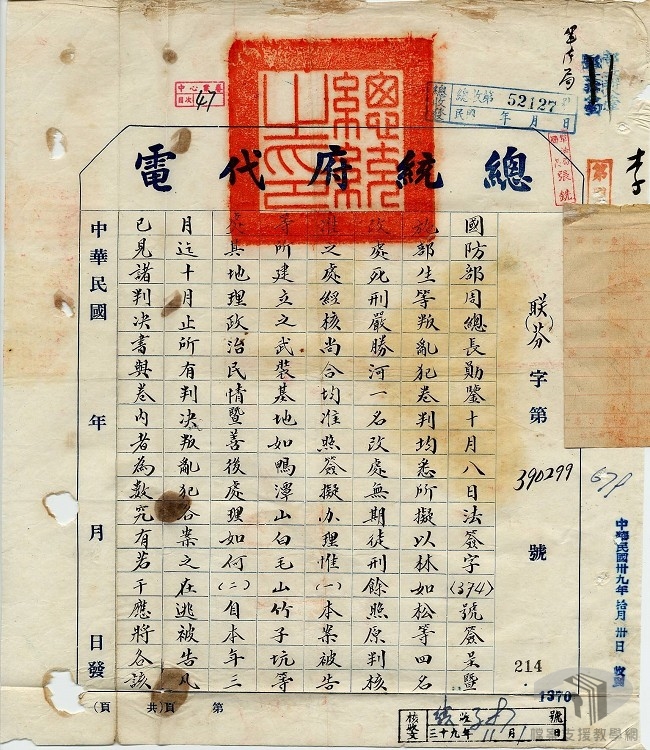 總統府代電
軍法局
總收第 52127 號
民國 年 月 日
目次 47
總統之印
李
張銑
聯(芬)字第 390299 號
214
國防部周總長勛鑒十月八日法簽字(374)號簽呈暨
施部生等叛亂犯卷判均悉所擬以林如松等四名
改處死刑嚴勝河一名改處無期徒刑餘照原判核
准之處經核尚合均准照簽擬办理惟(一)本案被告
等所建立之武裝基地如鴨潭山白毛山竹子坑等
處其地理政治民情暨善後處理如何(二)自本年三
月迄十月止所有判决叛亂犯各案之在逃被告凡
已見諸判决書與卷内者為数究有若干應將各該
中華民國 年 月 日發
第 頁(共 頁)
中華民國卅九年拾月卅日 收
1370
三十九年11月1日
檔案支援教學網